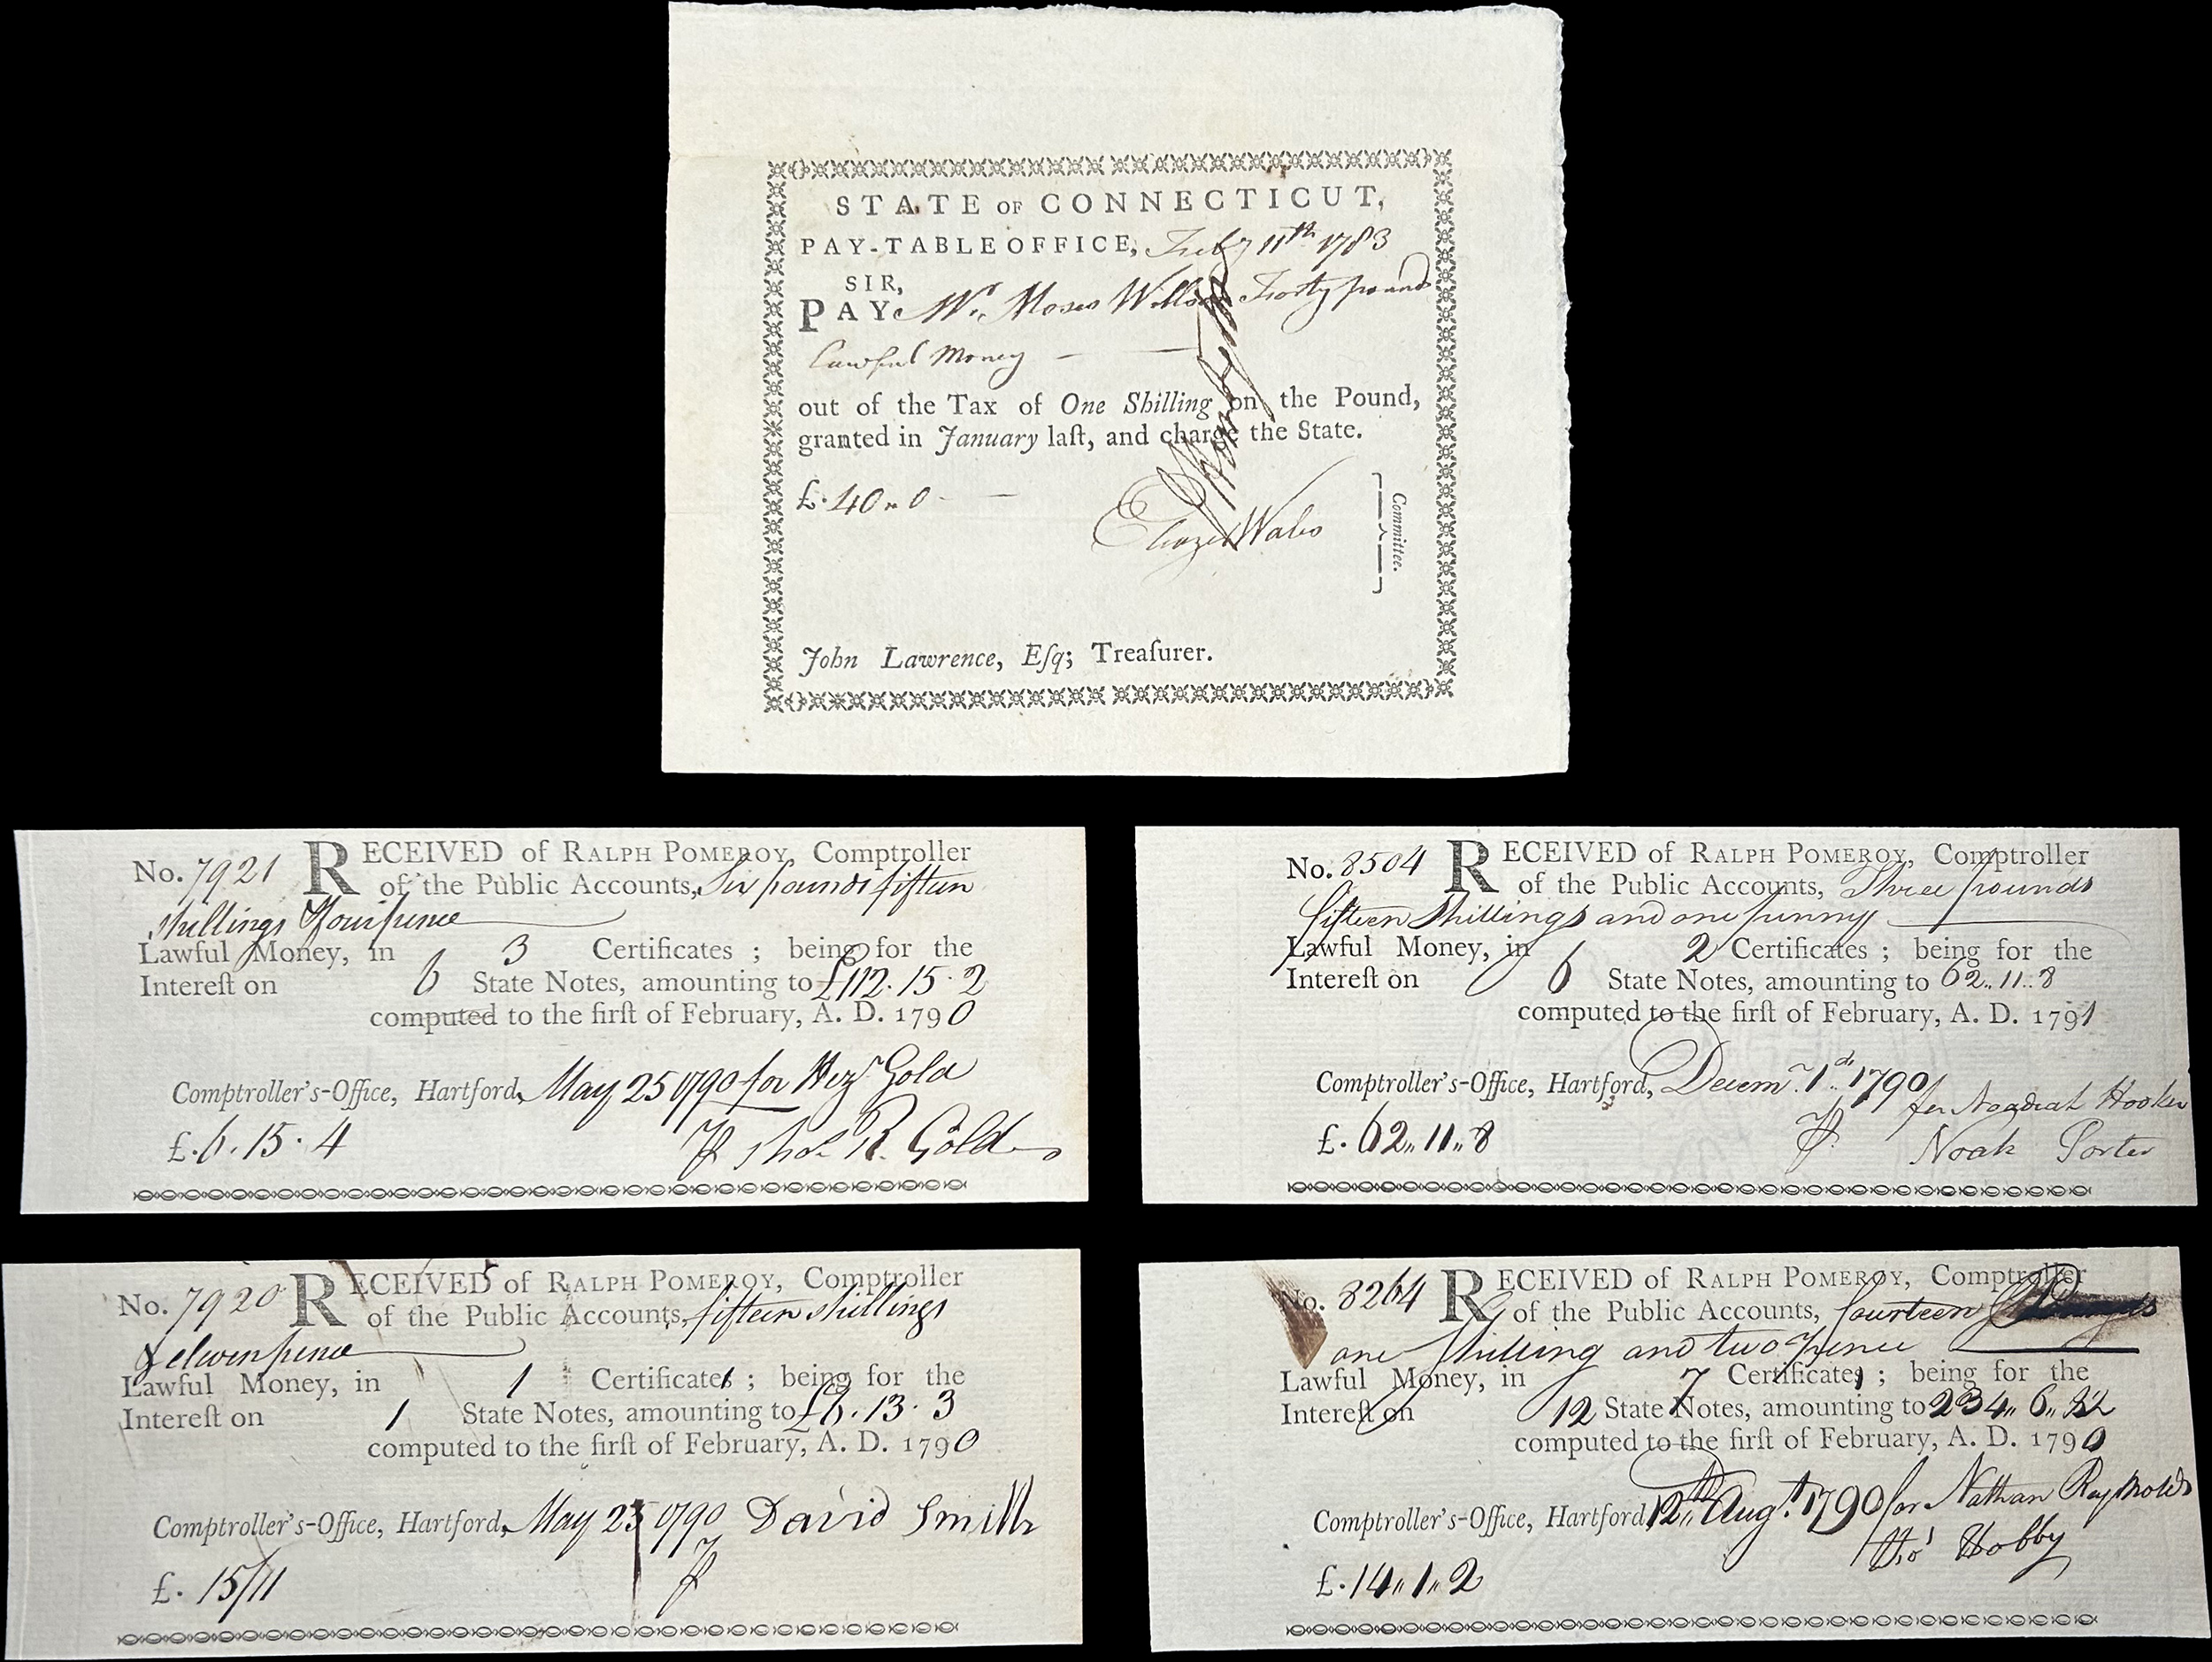 STATE OF CONNECTICUT,
PAY-TABLE OFFICE, Feby 11th 1783
SIR,
PAY Mr. Moses Forty pounds
Lawful Money
out of the Tax of One Shilling on the Pound,
granted in January laſt, and charge the State.
£. 40 " 0
Eleazr Wales
Committee.
John Lawrence, Eſq; Treaſurer.
No. 7921 RECEIVED of RALPH POMEROY, Comptroller
of the Public Accounts, Six pounds fifteen
shillings & fourpence
Lawful Money, in 3 Certificates ; being for the
Intereſt on 6 State Notes, amounting to £112. 15. 2
computed to the firſt of February, A. D. 1790
Comptroller's-Office, Hartford, May 25 1790 for Hezh Gold
£. 6. 15. 4 Thos R. Gold
No. 8504 RECEIVED of RALPH POMEROY, Comptroller
of the Public Accounts, Three pounds
fifteen Shillings and one penny
Lawful Money, in 2 Certificates ; being for the
Intereſt on 6 State Notes, amounting to 62 .. 11 .. 8
computed to the firſt of February, A. D. 1791
Comptroller's-Office, Hartford, Decemr. 1 1790 for Noadiah Hooker
£. 62 .. 11 .. 8 Noah Porter
No. 7920 RECEIVED of RALPH POMEROY, Comptroller
of the Public Accounts, fifteen shillings
& elevenpence
Lawful Money, in 1 Certificate ; being for the
Intereſt on 1 State Notes, amounting to £6. 13. 3
computed to the firſt of February, A. D. 1790
Comptroller's-Office, Hartford, May 25 1790 David Smith
£. 15/11
No. 8264 RECEIVED of RALPH POMEROY, Comptroller
of the Public Accounts, fourteen Pounds
one Shilling and two Pence
Lawful Money, in 7 Certificates ; being for the
Intereſt on 12 State Notes, amounting to 234 .. 6 ..
computed to the firſt of February, A. D. 1790
Comptroller's-Office, Hartford 12th Augt. 1790 for Nathan Raynolds
Thos Hobby
£. 14 .. 1 .. 2